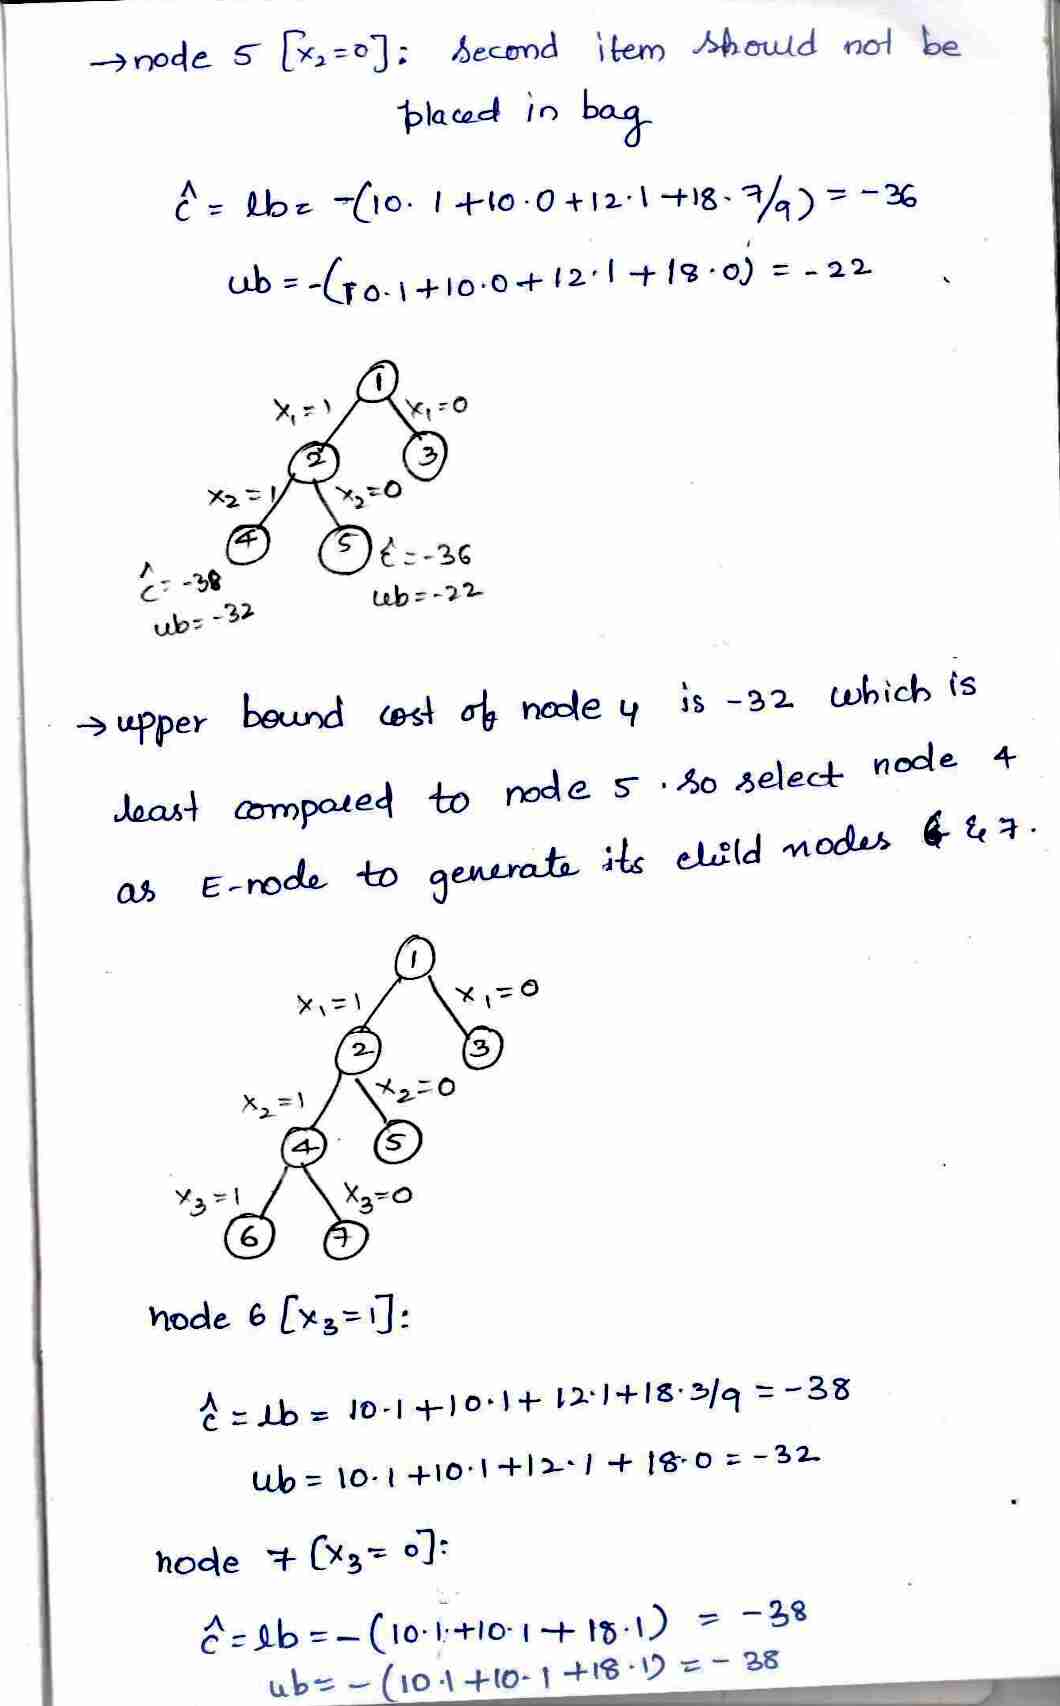 → node 5 [x₂=0]: Second item should not be
placed in bag
ĉ = lb = -(10.1+10.0+12.1+18.7/9) = -36
ub = -(10.1+10.0+12.1+18.0) = -22
1
x₁=1 x₁=0
2 3
x₂=1 x₂=0
4 5 ĉ=-36
ĉ=-38 ub=-22
ub=-32
→ upper bound cost of node 4 is -32 which is
least compared to node 5. so select node 4
as E-node to generate its child nodes 6 & 7.
1
x₁=1 x₁=0
2 3
x₂=1 x₂=0
4 5
x₃=1 x₃=0
6 7
node 6 [x₃=1]:
ĉ = lb = 10.1+10.1+12.1+18.3/9 = -38
ub = 10.1+10.1+12.1+18.0 = -32
node 7 [x₃=0]:
ĉ = lb = -(10.1+10.1+18.1) = -38
ub = -(10.1+10.1+18.1) = -38